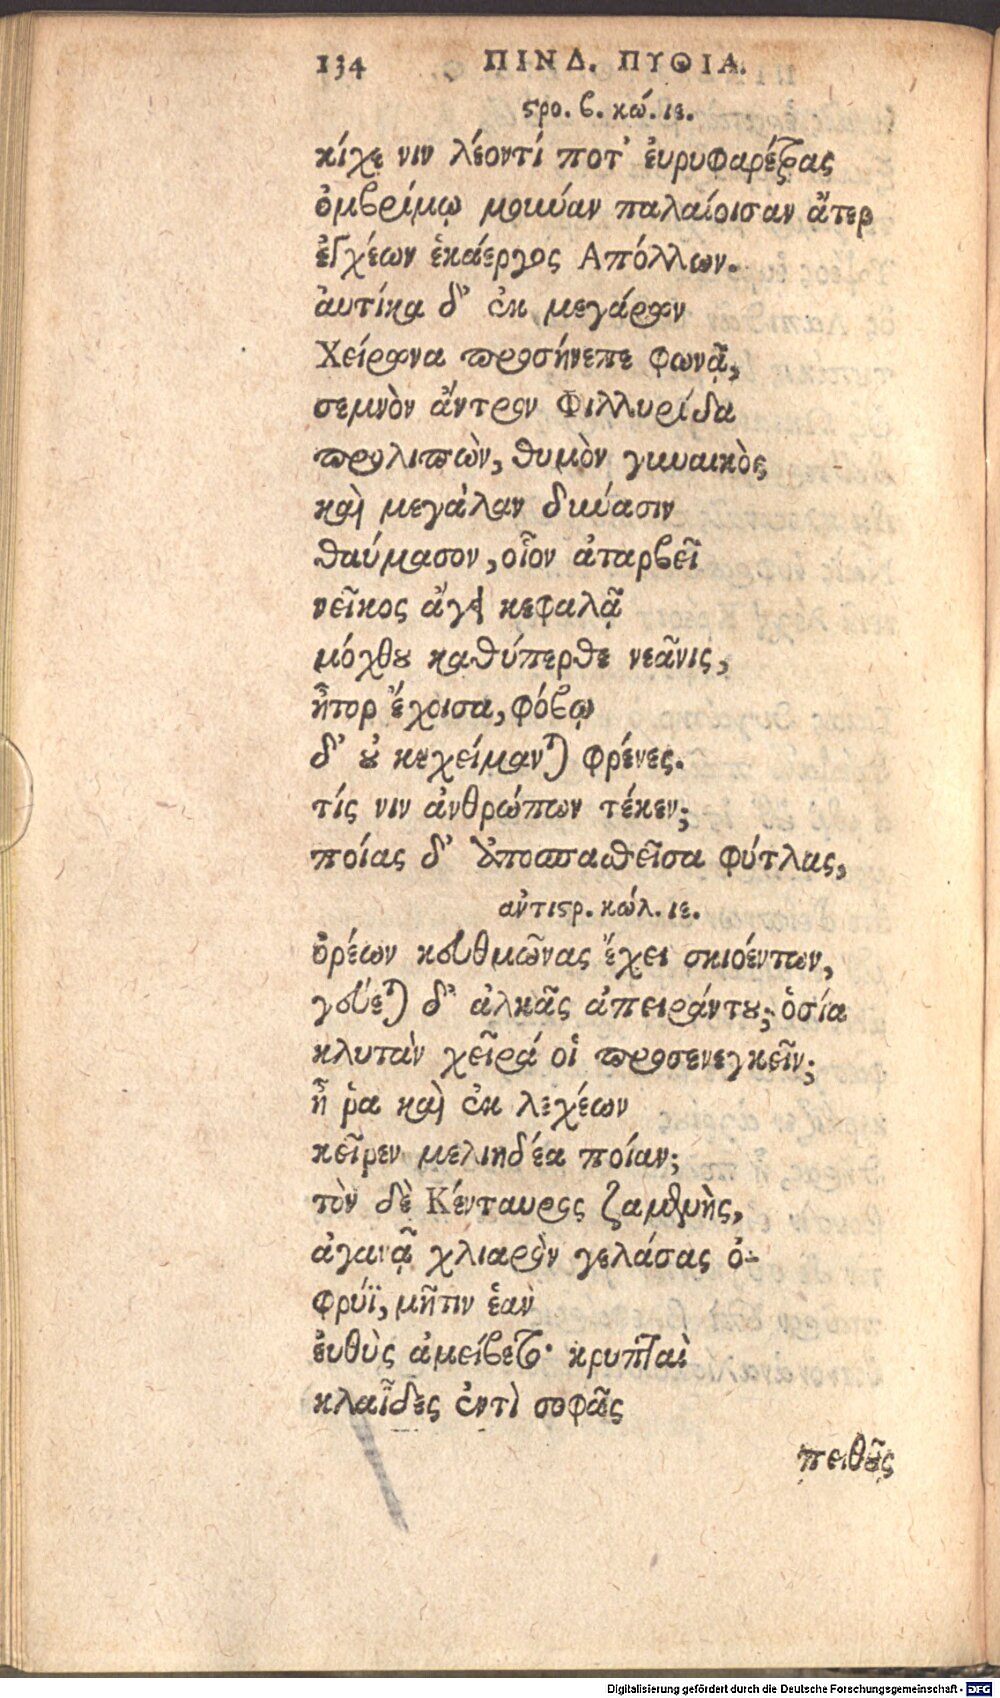 134 ΠΙΝΔ. ΠΥΘΙΑ.
στρο. β. κώ. ιε.
κίχε νιν λέοντί ποτ' ἐυρυφαρέτρας
ὀμβρίμῳ μούναν παλαίοισαν ἄτερ
ἐγχέων ἑκάεργος Απόλλων.
ἀυτίκα δ' ἐκ μεγάρων
Χείρωνα προσήνεπε φωνᾷ,
σεμνὸν ἄντρον Φιλλυρίδα
προλιπὼν, θυμὸν γυναικὸς
καὶ μεγάλαν δύνασιν
θαύμασον, οἷον ἀταρβεῖ
νεῖκος ἄγει κεφαλᾷ
μόχθου καθύπερθε νεᾶνις,
ἦτορ ἔχοισα, φόβῳ
δ' οὐ κεχείμανται φρένες.
τίς νιν ἀνθρώπων τέκεν;
ποίας δ' ἀποσπασθεῖσα φύτλας,
αντιστρ. κώλ. ιε.
ὀρέων κευθμῶνας ἔχει σκιοέντων,
γεύεται δ' ἀλκᾶς ἀπειράντου; ὁσία
κλυτὰν χεῖρά οἱ προσενεγκεῖν;
ἦ ῥα καὶ ἐκ λεχέων
κεῖρεν μελιηδέα ποίαν;
τὸν δὲ Κένταυρος ζαμενὴς,
ἀγανᾷ χλιαρὸν γελάσας ὀ-
φρύϊ, μῆτιν ἑὰν
ἐυθὺς ἀμείβετο· κρυπταὶ
κλαῗδες ἐντὶ σοφᾶς
πειθοῦς
Digitalisierung gefördert durch die Deutsche Forschungsgemeinschaft - DFG